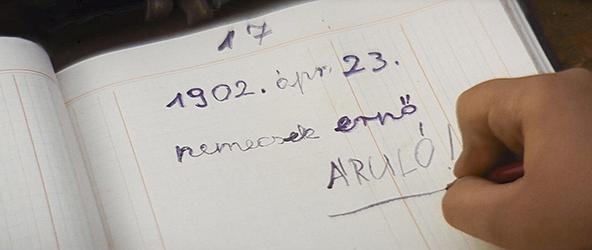 17
1902. ápr. 23.
nemecsek ernő
ÁRULÓ!